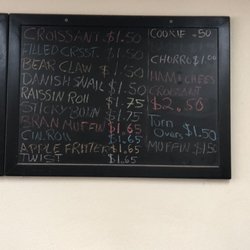 CROISSANT $1.50
FILLED CRSST. $1.50
BEAR CLAW $1.50
DANISH SNAIL $1.50
RAISSIN ROLL $1.75
STICKY BUNN $1.75
BRAN MUFFIN $1.65
CIN. ROLL $1.65
APPLE FRITTER $1.65
TWIST $1.65
COOKIE .50
CHURRO $1.00
HAM & CHEES
CROISSANT
$2.50
Turn
Overs $1.50
MUFFIN